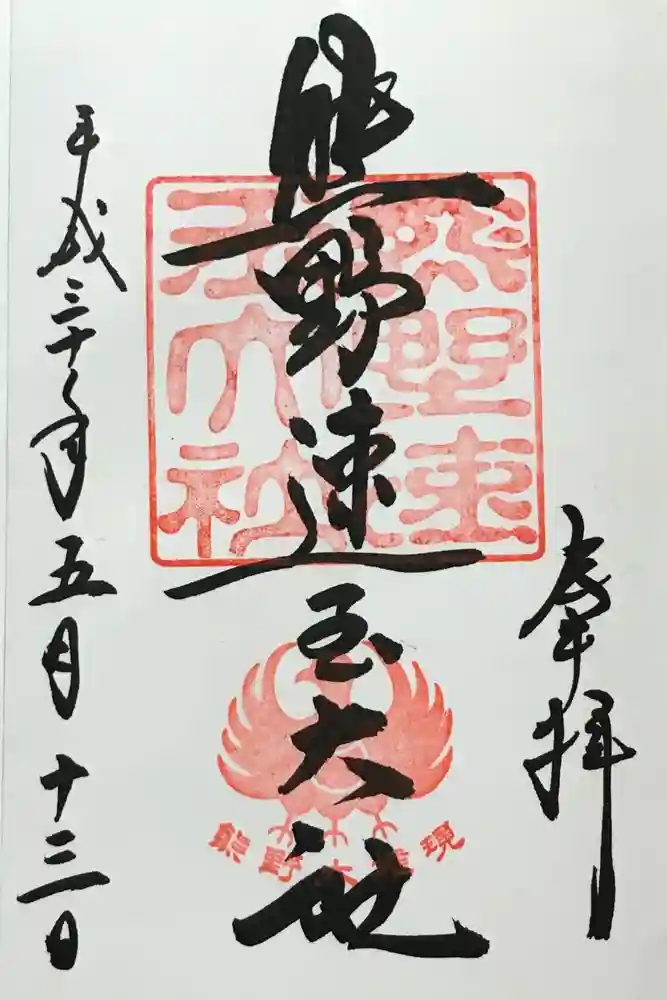 奉拝
熊野速玉大社
熊野速
玉大社
熊野大権現
平成三十年五月十三日